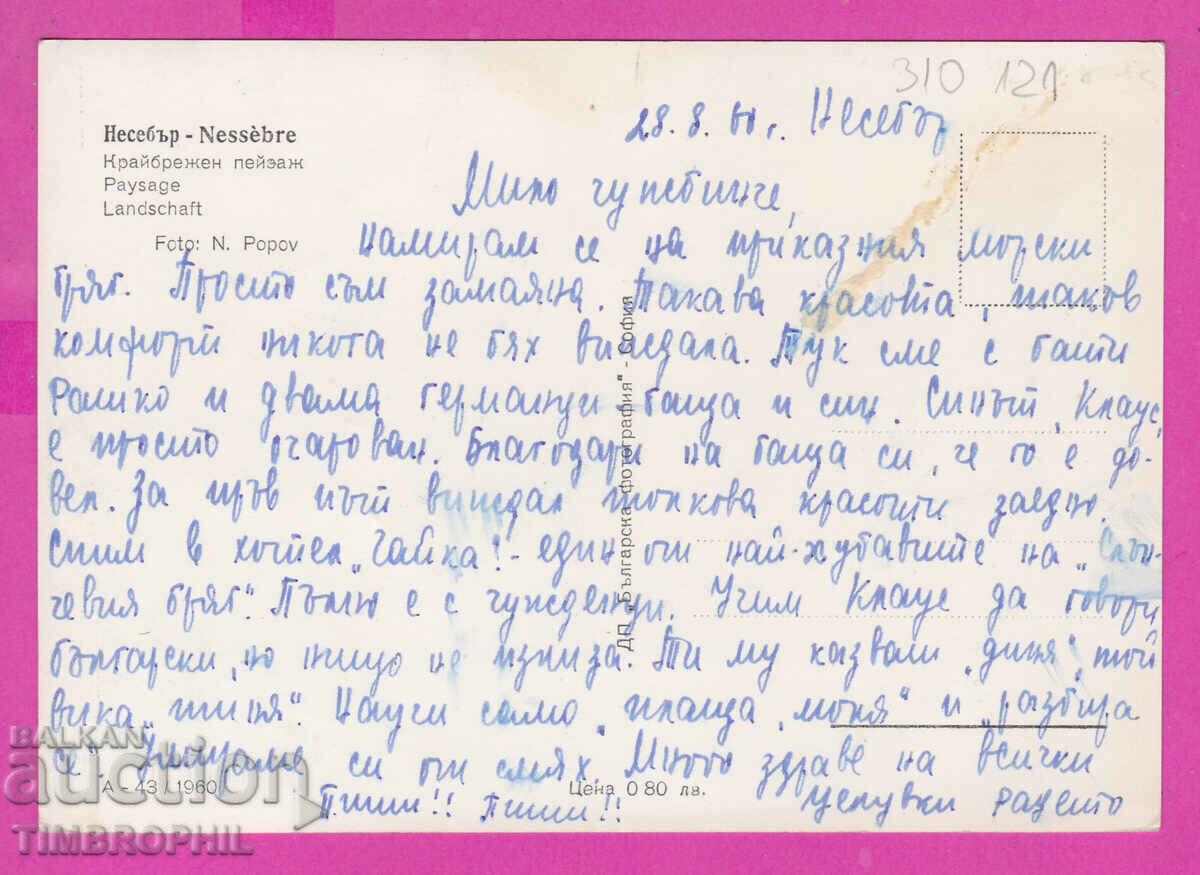 310 121
28.8.60 г. Несебър
Несебър - Nessèbre
Крайбрежен пейзаж
Paysage
Landschaft
Foto: N. Popov
Мило
Намирам се на приказния морски
бряг. Просто съм замаяна. Такава красота, таков
комфорт никога не бях виждала. Тук сме с бати
Рашко и двама германци - баща и син. Синът, Клаус,
е просто очарован. Благодари на баща си, че го е до-
вел. За пръв път виждал толкова красоти заедно.
Спим в хотел „Чайка" - един от най-хубавите на „Слън-
чевия бряг". Пълно е с чужденци. Учим Клаус да говори
български, но нищо не излиза. Ти му казвали „диня", той
вика „тиня". Научи само „плаща, моля" и „разбира
се". Умираме си от смях. Много здраве на всички
Пиши!! Пиши!! Целувки Рацето
ДП „Българска фотография" - София
А - 43 / 1960
Цена 0 80 лв.
BALKAN
auction
TIMBROPHIL